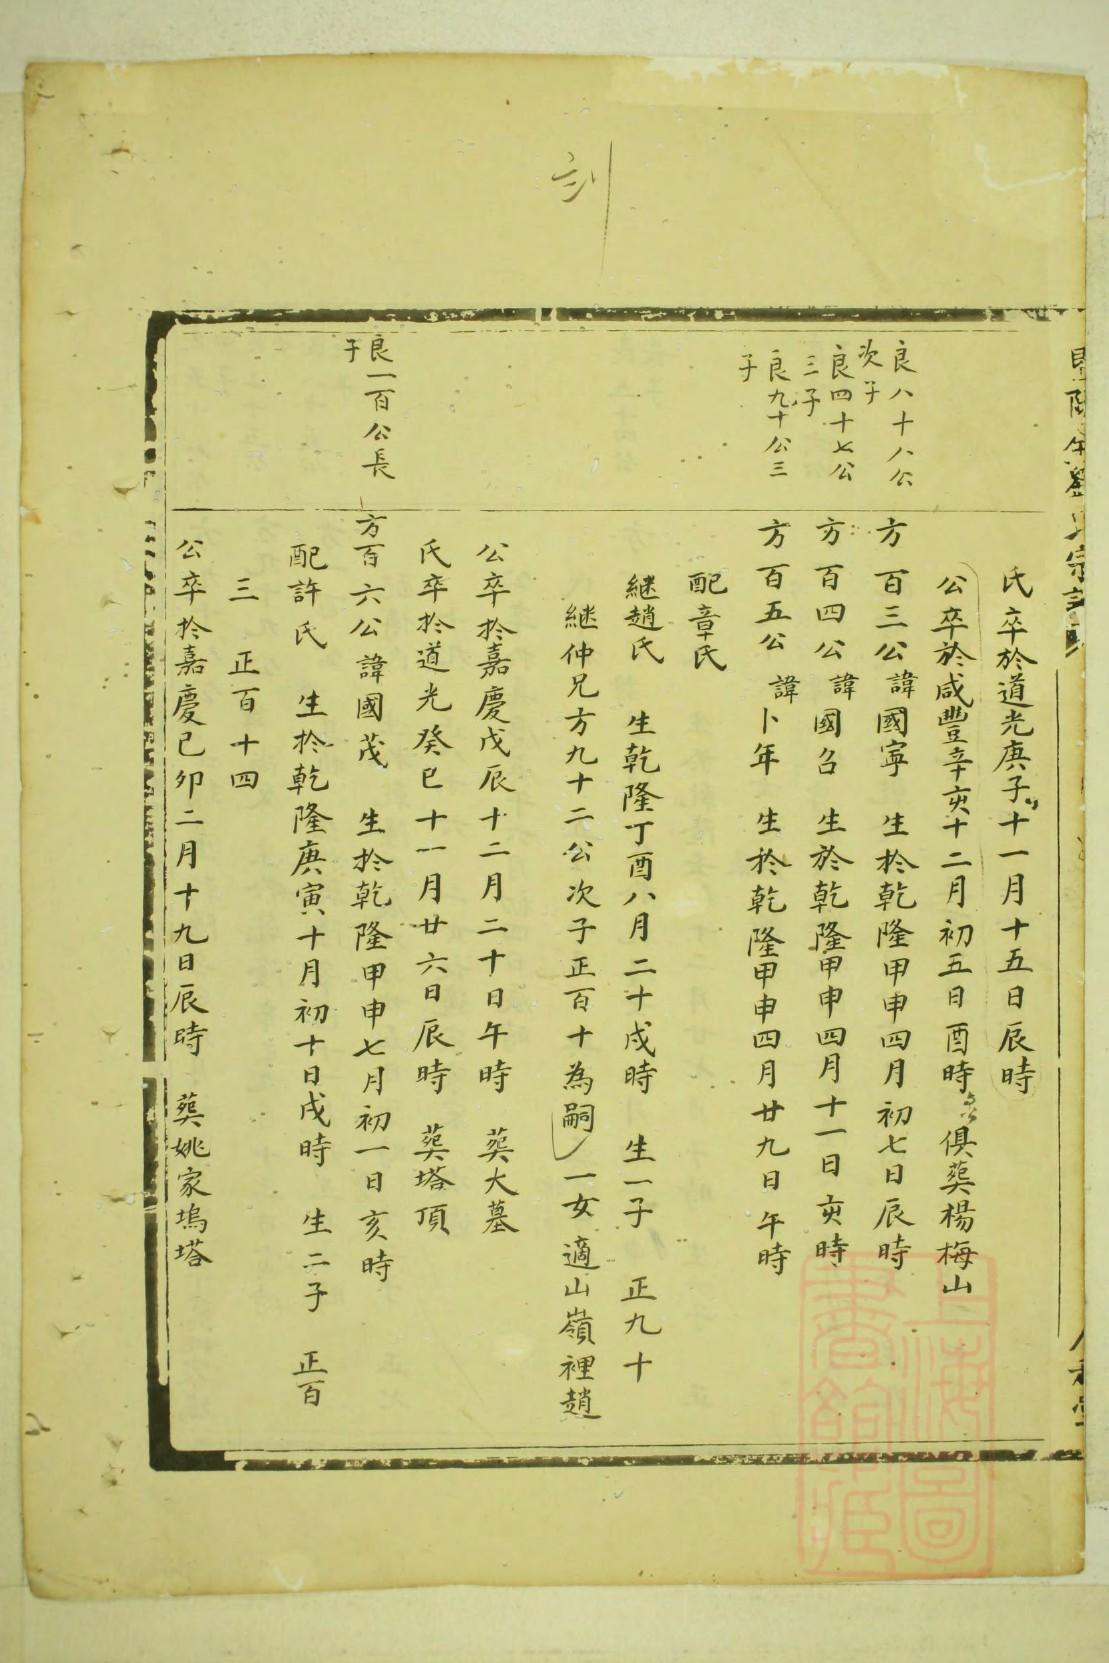 氏卒於道光庚子十一月十五日辰時
公卒於咸豐辛亥十二月初五日酉時 俱葬楊梅山
良八十八公次子
方百三公諱國寧 生於乾隆甲申四月初七日辰時
良四十七公三子
方百四公諱國召 生於乾隆甲申四月十一日亥時
良九十公三子
方百五公諱卜年 生於乾隆甲申四月廿九日午時
配章氏
継趙氏 生乾隆丁酉八月二十戌時 生一子 正九十
継仲兄方九十二公次子正百十為嗣 一女適山嶺裡趙
公卒於嘉慶戊辰十二月二十日午時 葬大墓
氏卒於道光癸巳十一月廿六日辰時 葬塔頂
良一百公長子
方百六公諱國茂 生於乾隆甲申七月初一日亥時
配許氏 生於乾隆庚寅十月初十日戌時 生二子 正百
三 正百十四
公卒於嘉慶己卯二月十九日辰時 葬姚家塢塔
上海圖書館藏